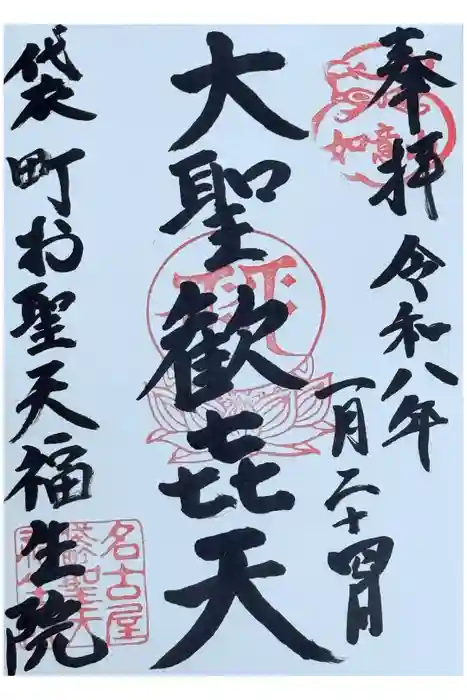 奉拝
令和八年
一月二十四日
大聖歓㐂天
袋町お聖天福生院
如意
名古屋